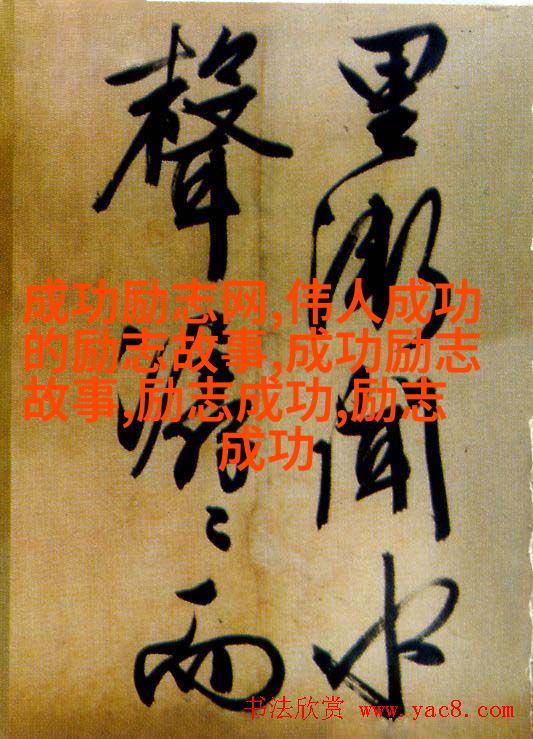 里漸聞水
聲潺〻而
成功励志网,伟人成功
的励志故事,成功励志
故事,励志成功,励志
成功
书法欣赏 www.yac8.com